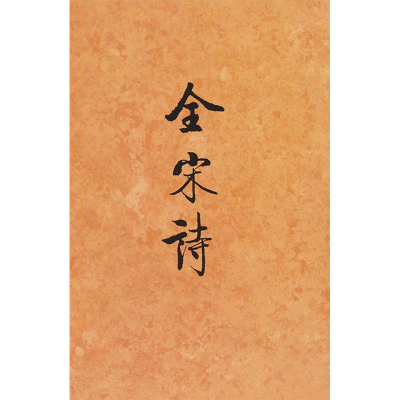 全宋詩